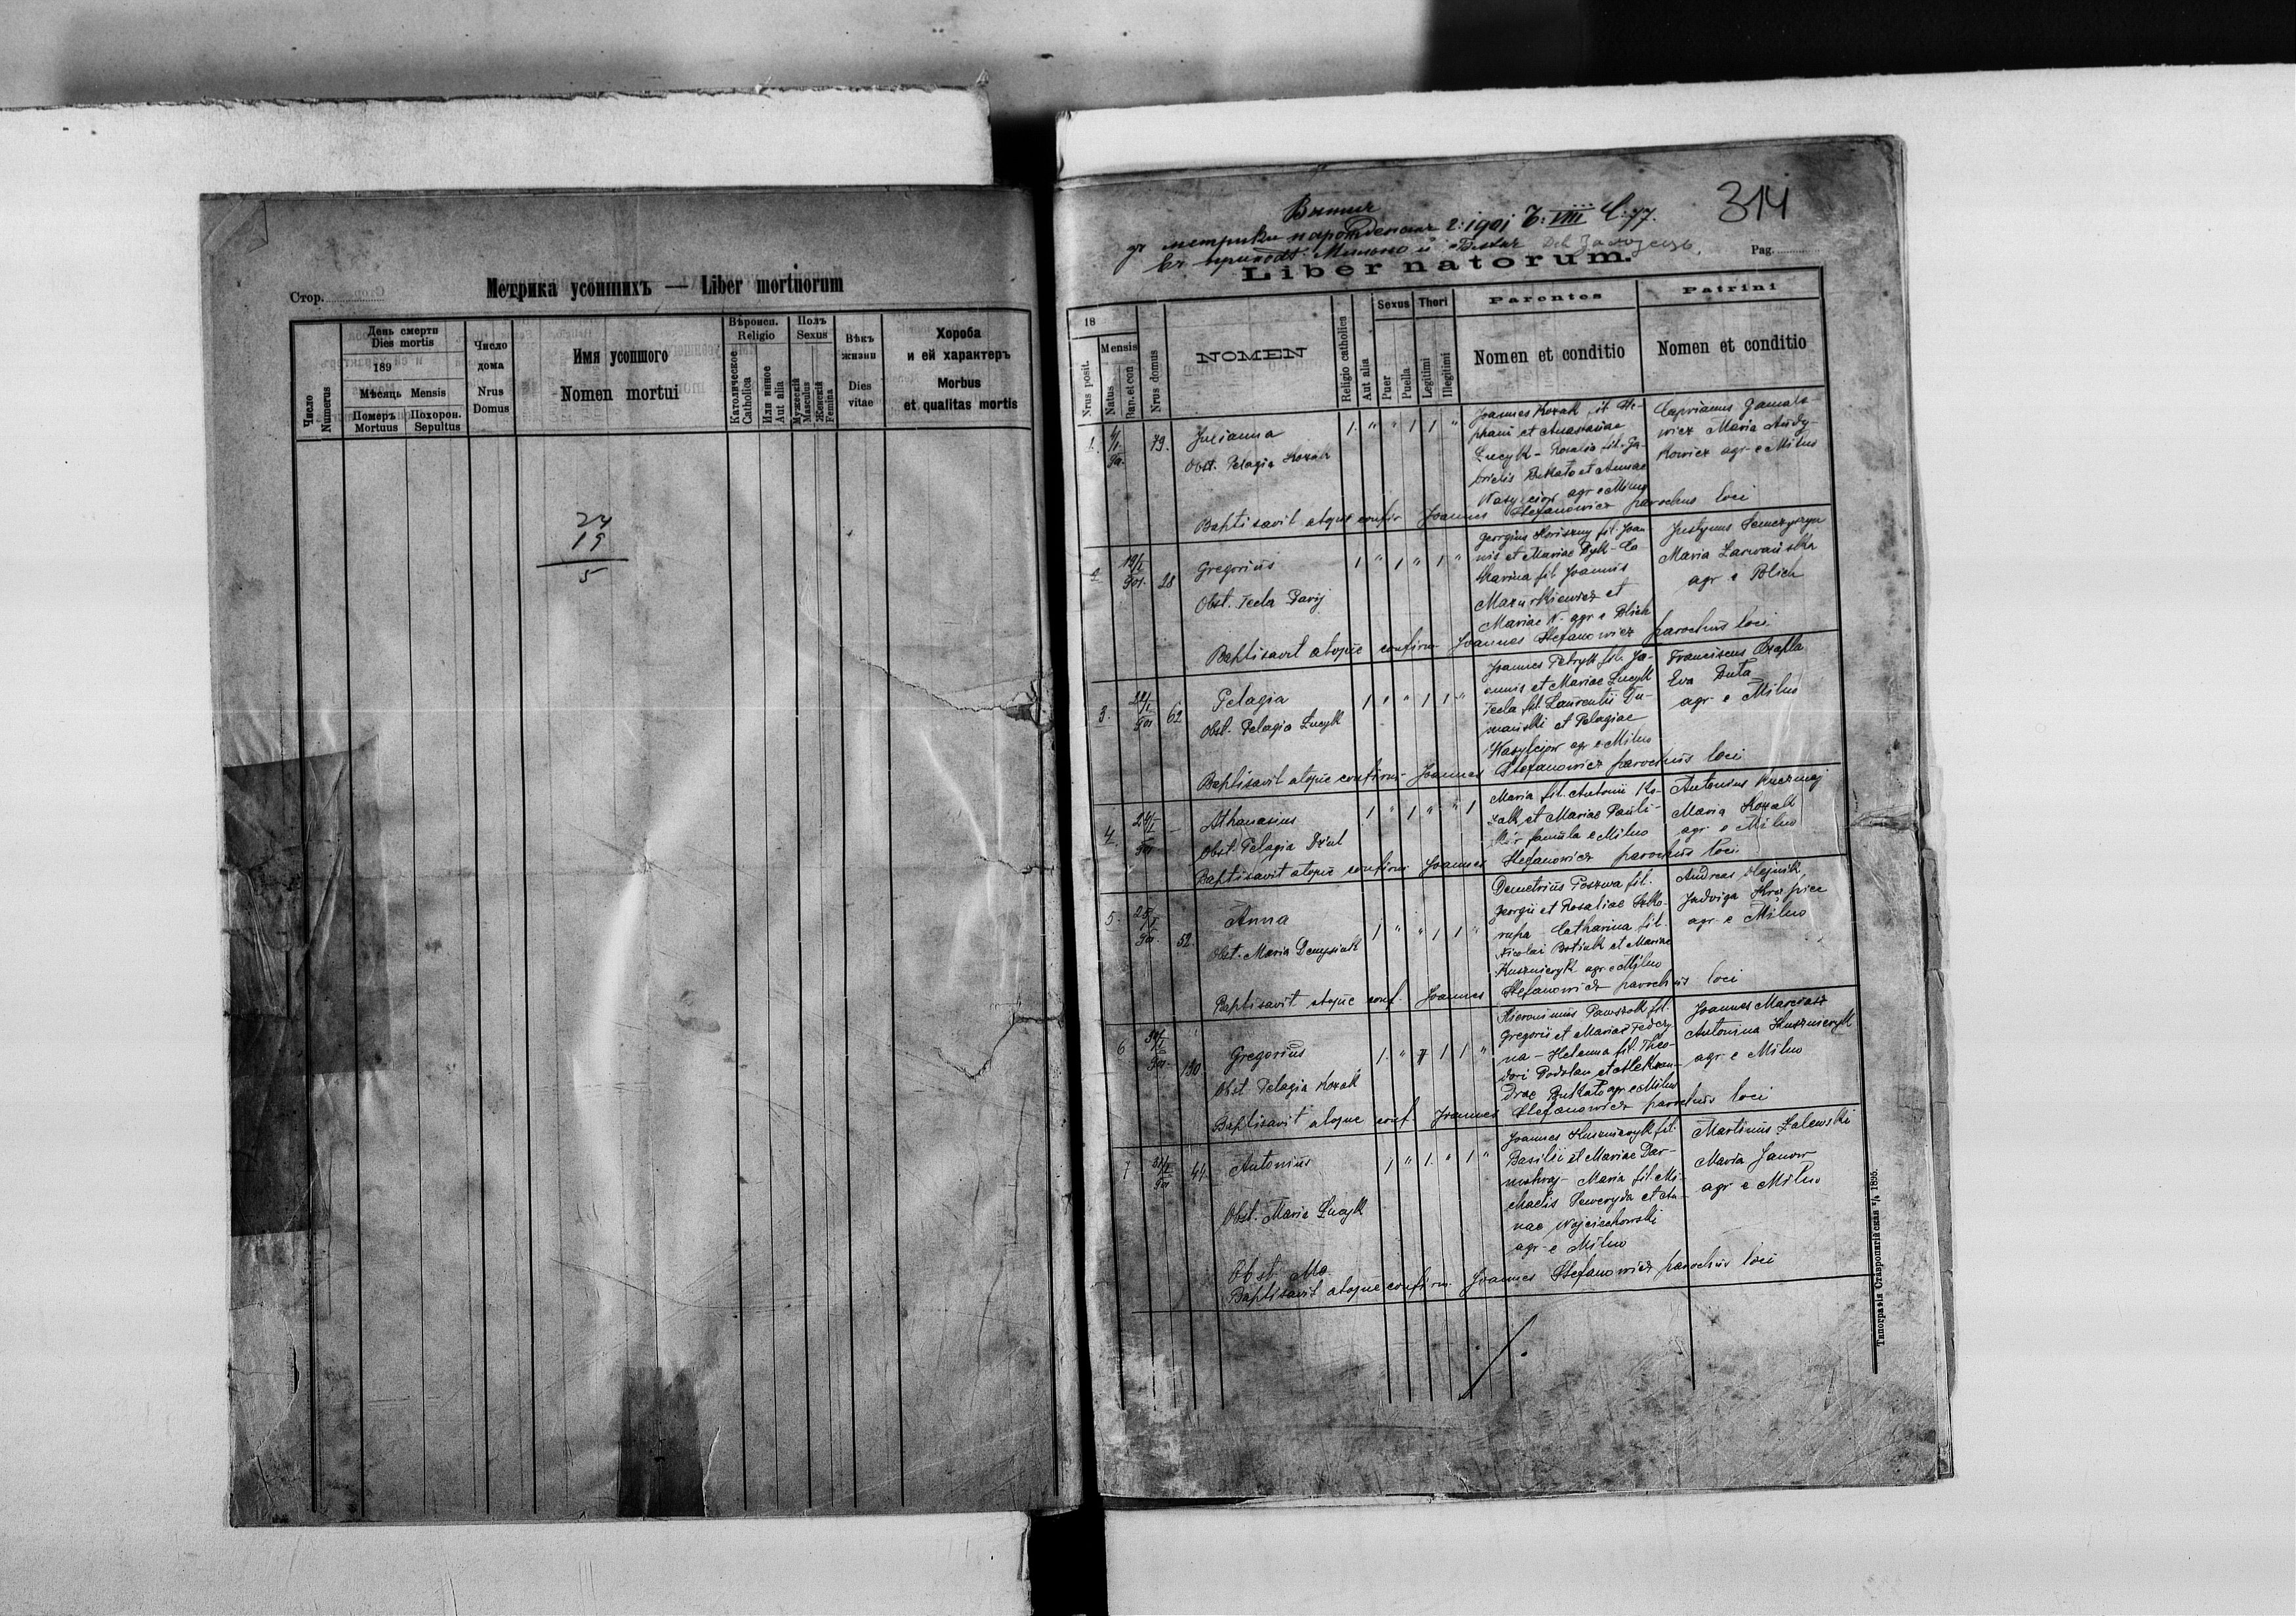 Стор.
Метрика усопшихъ — Liber mortuorum
Число
Numerus
День смерти
Dies mortis
189
Мѣсяць Mensis
Померъ Похорон.
Mortuus Sepultus
Число
дома
Nrus
Domus
Имя усопшого
Nomen mortui
Вѣроисп.
Religio
Католическое
Catholica
Или инное
Aut alia
Полъ
Sexus
Мужескій
Masculus
Женскій
Femina
Вѣкъ
жизни
Dies
vitae
Хороба
и ей характеръ
Morbus
et qualitas mortis
24
19
5
314
1901 VIII
Pag.
Liber natorum.
18
Nrus posit.
Mensis
Natus
Bap. et con
Nrus domus
NOMEN
Religio catholica
Aut alia
Sexus
Puer
Puella
Thori
Legitimi
Illegitimi
Parentes
Nomen et conditio
Patrini
Nomen et conditio
1. 79. Julianna
Obst. Pelagia Kozak
Joannes Kozak fil. Ste-
phani et Anastasiae
Łucyk - Rosalia fil. Ga-
brielis Dukato et Annae
Wasylciow agr e Milno
Maria Andy-
kowicz agr e Milno
Baptisavit atque confir Joannes Stefanowicz parochus loci
2 19/I 901. 28 Gregorius
Obst. Tecla Parij
Georgius Koriszny fil. Joan-
nis et Mariae Dyk - Ca-
tharina fil Joannis
Mazurkiewicz et
Mariae N. agr e Blich
Maria Zarwańska
agr e Blich
Baptisavit atque confirm Joannes Stefanowicz parochus loci
3. 62 Pelagia
Obst. Pelagia Łucyk
Joannes Petryk fil. Jo-
annis et Mariae Łucyk
Tecla fil. Laurentii Du-
mański et Pelagiae
Wasylciow agr e Milno
Franciscus Czapla
Eva Duta
agr e Milno
Baptisavit atque confirm Joannes Stefanowicz parochus loci
4. 24/I 901 — Athanasius
Obst. Pelagia Dziul
Maria fil. Antonii Ko-
zak et Mariae Pauli-
famula e Milno
Antonius Kuczmaj
Maria Kozak
agr e Milno
Baptisavit atque confirm Joannes Stefanowicz parochus loci
5. 25/I 901. 52. Anna
Obst. Maria Demysiuk
Demetrius Poszwa fil.
Georgii et Rosaliae Szko-
rupa Catharina fil.
Nicolai Botiuk et Mariae
Kusznieryk agr e Milno
Andreas Olejnik
Jadviga
agr e Milno
Baptisavit atque conf. Joannes Stefanowicz parochus loci
6 130 Gregorius
Obst Pelagia Kozak
Hieronimus Pawszok fil.
Gregorii et Mariae Fedczy-
na - Helena fil. Theo-
dori Podolan et Aleksan-
drae Dukato agr e Milno
Joannes Marciasz
Antonina Kusznieryk
agr e Milno
Baptisavit atque conf Joannes Stefanowicz parochus loci
7 31/I 901 44. Antonius
Obst. Maria Łucyk
Joannes Kusznieryk fil.
Basilii et Mariae Dar-
mohraj - Maria fil. Mi-
chaelis Seweryda et An-
nae Wojciechowski
agr e Milno
Martinus Zalewski
Maria Janow
agr e Milno
Obst. Ma
Baptisavit atque confirm. Joannes Stefanowicz parochus loci
Типографія Ставропигійская 1895.